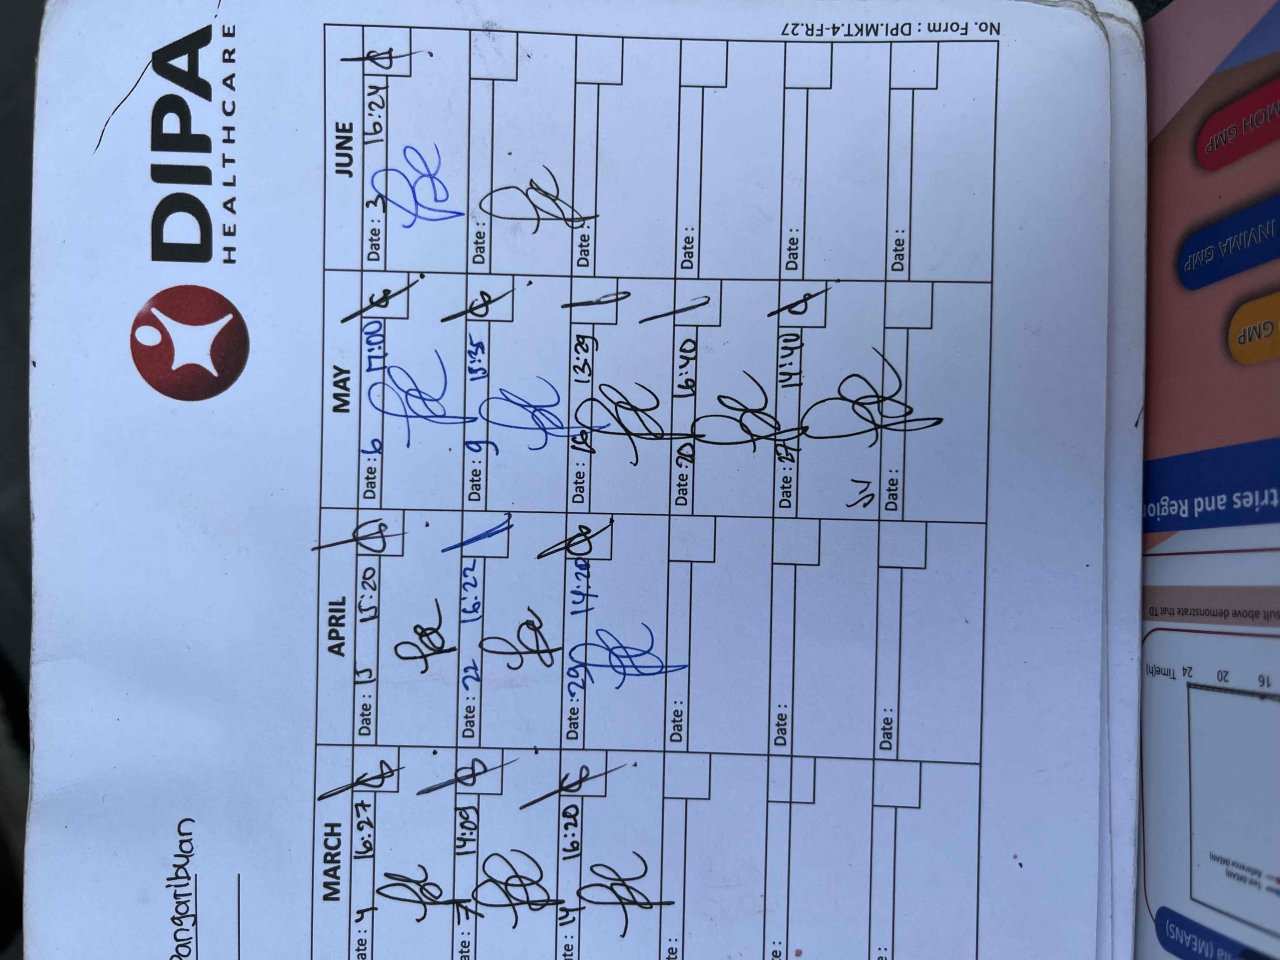 DIPA
HEALTHCARE
Pangaribuan
MARCH
Date : 4 16:27
ate : 7 14:09
Date : 14 16:20
te :
te :
e :
APRIL
Date : 15 15:20
Date : 22 16:22
Date : 29 14:20
Date :
Date :
Date :
MAY
Date : 6 17:00
Date : 9 15:35
Date : 16 13:29
Date : 20 16:40
Date : 27 14:40
Date :
JUNE
Date : 3 16:24
Date :
Date :
Date :
Date :
Date :
No. Form : DPI.MKT.4-FR.27
MOH GMP
INVIMA GMP
GMP
tries and Regio
sult above demonstrate that TD
16 20 24 Time(h)
Test (MEAN)
Reference (MEAN)
na (MEANS)